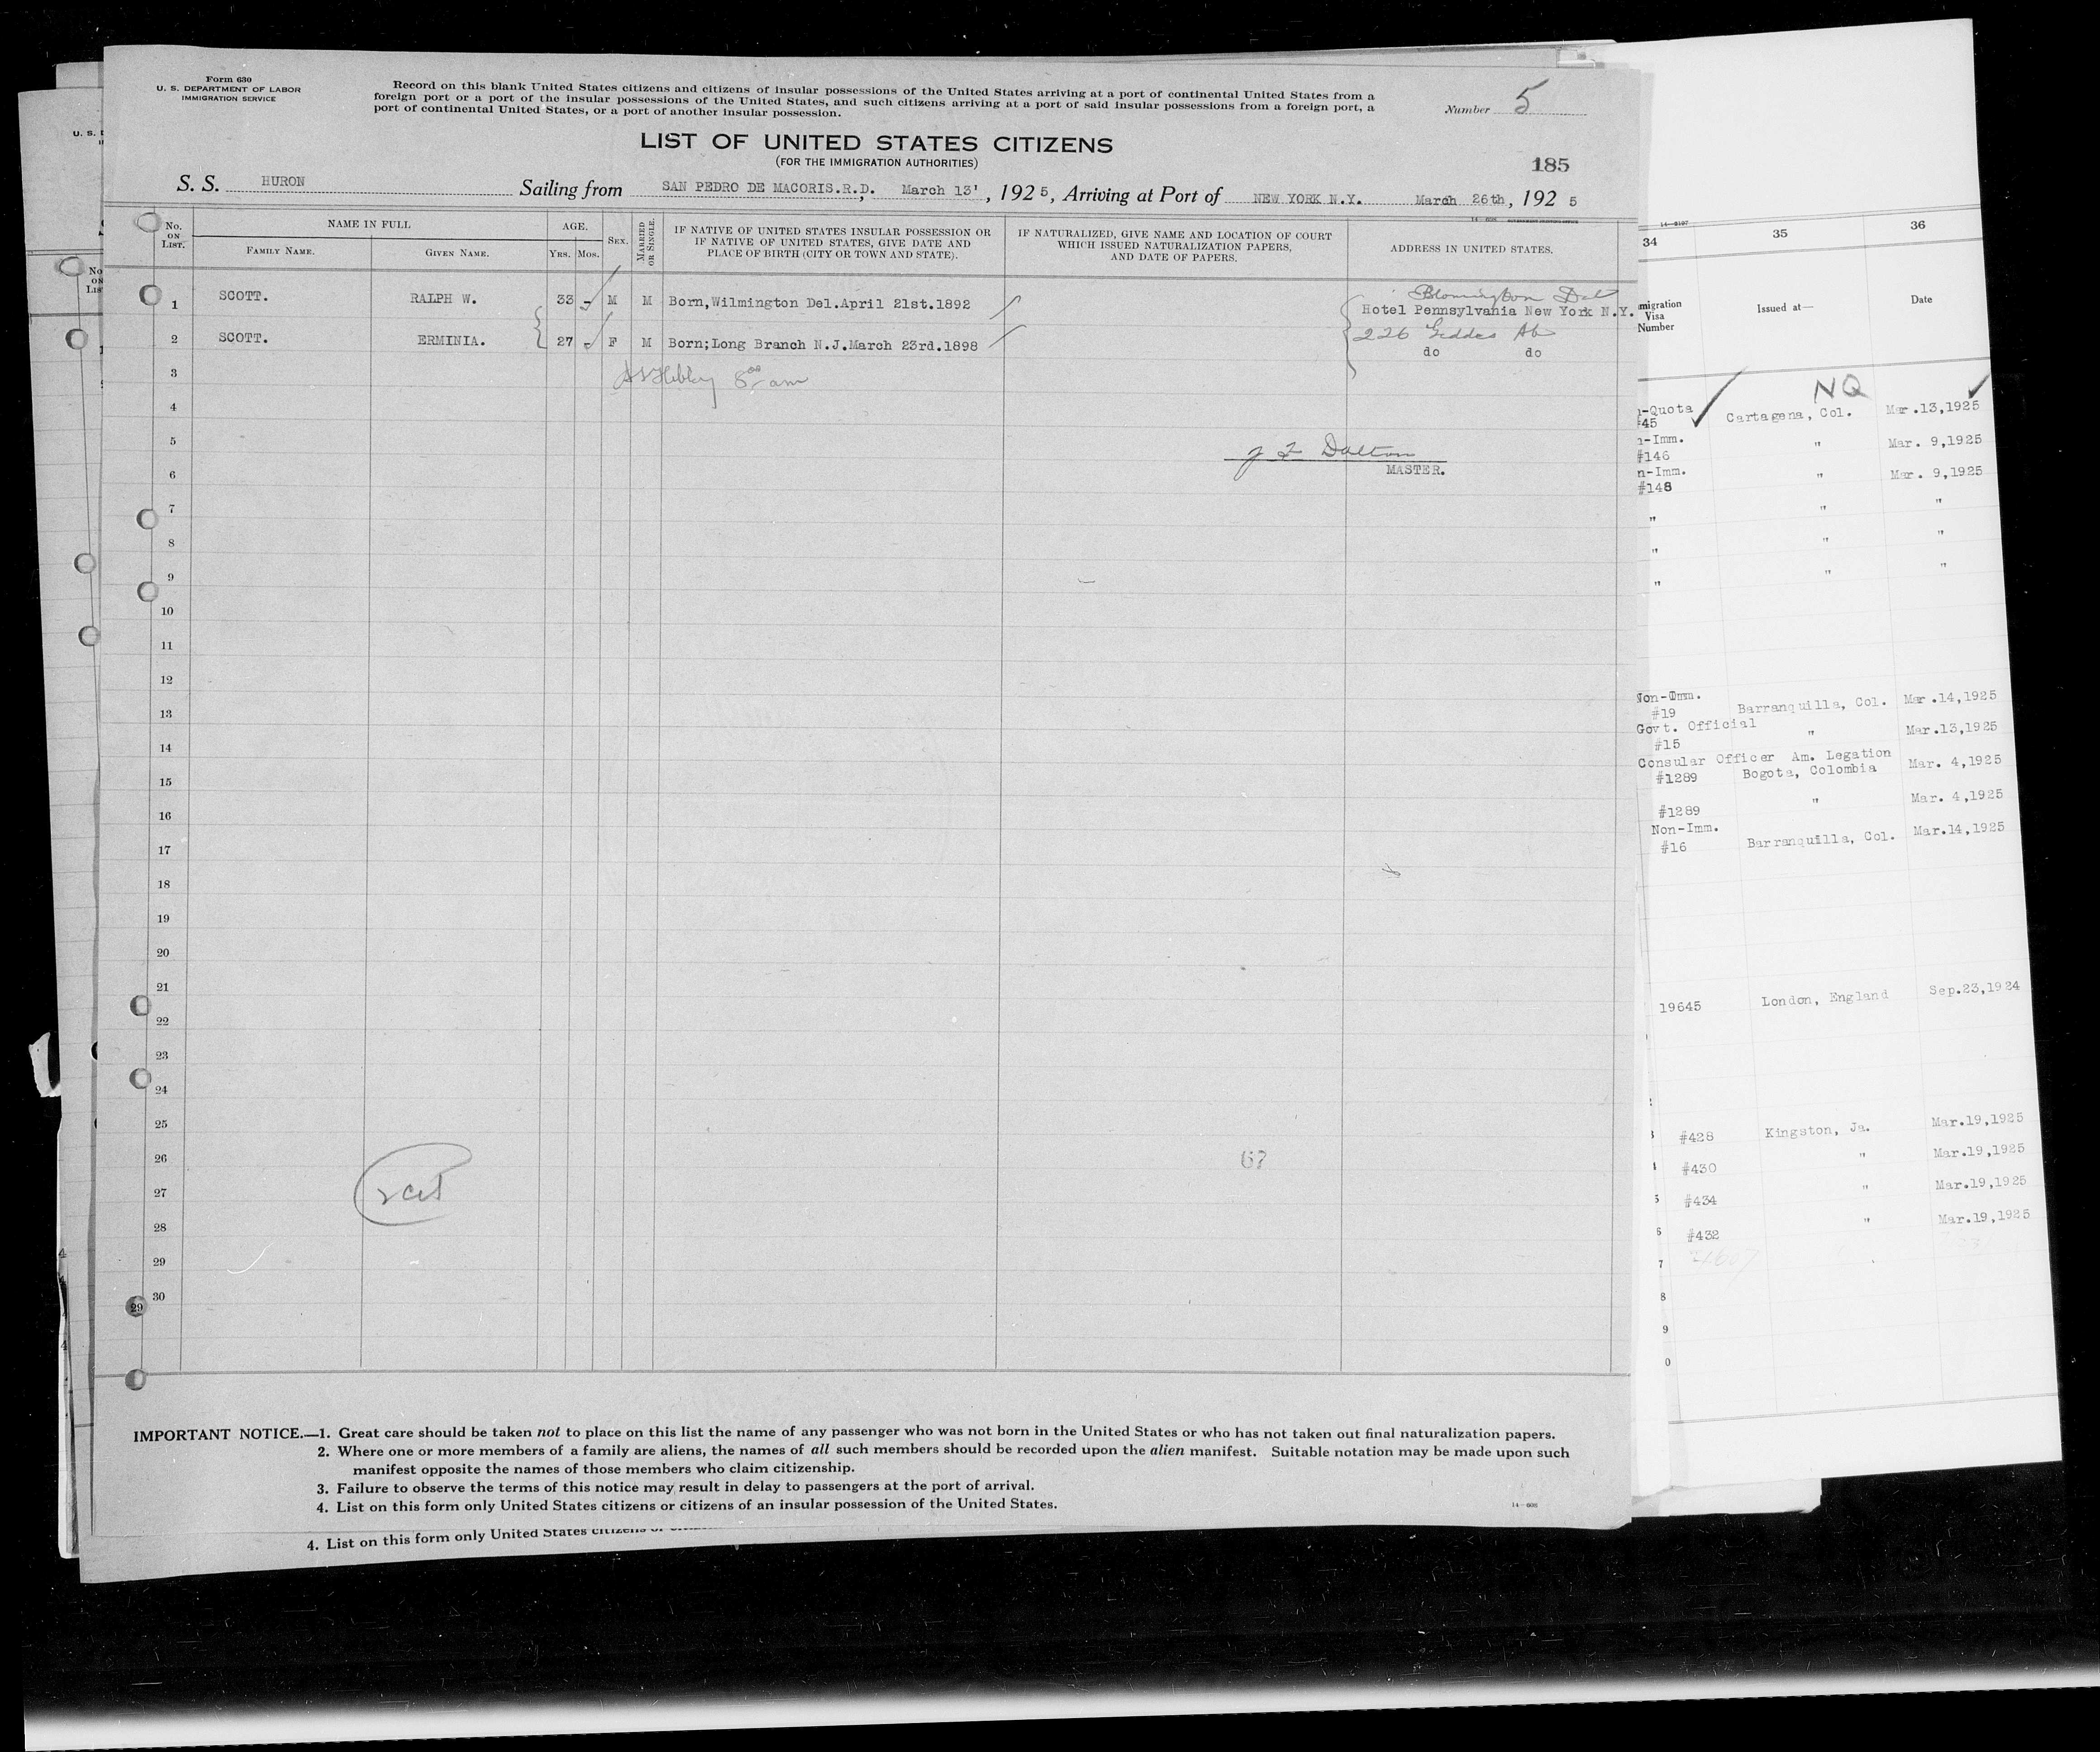 Form 630
U. S. DEPARTMENT OF LABOR
IMMIGRATION SERVICE
Record on this blank United States citizens and citizens of insular possessions of the United States arriving at a port of continental United States from a
foreign port or a port of the insular possessions of the United States, and such citizens arriving at a port of said insular possessions from a foreign port, a
port of continental United States, or a port of another insular possession.
Number 5
LIST OF UNITED STATES CITIZENS
(FOR THE IMMIGRATION AUTHORITIES)
185
S. S. HURON Sailing from SAN PEDRO DE MACORIS.R.D. March 13', 1925, Arriving at Port of NEW YORK N.Y. March 26th, 1925
No. ON LIST.
NAME IN FULL
FAMILY NAME.
GIVEN NAME.
AGE.
YRS. MOS.
SEX.
MARRIED OR SINGLE.
IF NATIVE OF UNITED STATES INSULAR POSSESSION OR
IF NATIVE OF UNITED STATES, GIVE DATE AND
PLACE OF BIRTH (CITY OR TOWN AND STATE).
IF NATURALIZED, GIVE NAME AND LOCATION OF COURT
WHICH ISSUED NATURALIZATION PAPERS,
AND DATE OF PAPERS.
ADDRESS IN UNITED STATES.
1 SCOTT. RALPH W. 33 - M M Born,Wilmington Del.April 21st.1892 Hotel Pennsylvania New York N.Y.
2 SCOTT. ERMINIA. 27 - F M Born;Long Branch N.J.March 23rd.1898 226 Geddes
do do
3 8 00 am
4
5 Dalton
MASTER.
6
7
8
9
10
11
12
13
14
15
16
17
18
19
20
21
22
23
24
25
26 67
27
28
29
30
29
IMPORTANT NOTICE.—1. Great care should be taken not to place on this list the name of any passenger who was not born in the United States or who has not taken out final naturalization papers.
2. Where one or more members of a family are aliens, the names of all such members should be recorded upon the alien manifest. Suitable notation may be made upon such
manifest opposite the names of those members who claim citizenship.
3. Failure to observe the terms of this notice may result in delay to passengers at the port of arrival.
4. List on this form only United States citizens or citizens of an insular possession of the United States.
14—608
4. List on this form only United States citizens
34 35 36
migration
Visa
Number
Issued at—
Date
NQ
-Quota
#45 Cartagena, Col. Mar.13,1925
-Imm.
#146 " Mar. 9,1925
n-Imm.
#148 " Mar. 9,1925
" " "
" " "
" " "
Non-Imm.
#19 Barranquilla, Col. Mar.14,1925
Govt. Official
#15 " Mar.13,1925
Consular Officer Am. Legation
#1289 Bogota, Colombia Mar. 4,1925
#1289 " Mar. 4,1925
Non-Imm.
#16 Barranquilla, Col. Mar.14,1925
19645 London, England Sep.23,1924
#428 Kingston, Ja. Mar.19,1925
#430 " Mar.19,1925
5 #434 " Mar.19,1925
6 #432 " Mar.19,1925
7
8
9
0